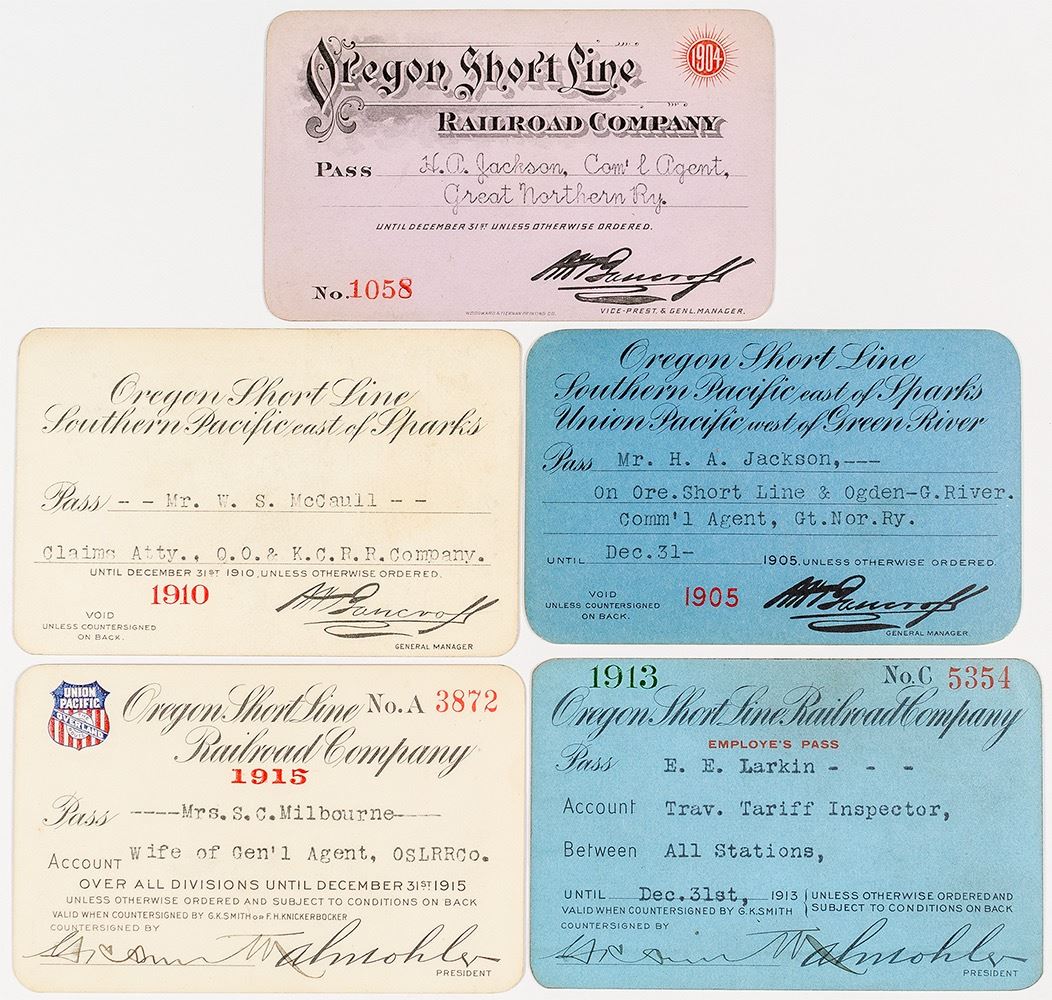 Oregon Short Line
1904
RAILROAD COMPANY
PASS H. A. Jackson, Com'l Agent,
Great Northern Ry.
UNTIL DECEMBER 31ST UNLESS OTHERWISE ORDERED.
No. 1058
WFBancroft
WOODWARD & TIERNAN PRINTING CO.
VICE-PREST. & GENL. MANAGER.
Oregon Short Line
Southern Pacific east of Sparks
Pass -- Mr. W. S. McCaull --
Claims Atty., O.O.& K.C.R.R.Company.
UNTIL DECEMBER 31ST 1910, UNLESS OTHERWISE ORDERED.
1910
VOID
UNLESS COUNTERSIGNED
ON BACK.
Bancroft
GENERAL MANAGER
Oregon Short Line
Southern Pacific east of Sparks
Union Pacific west of Green River
Pass Mr. H. A. Jackson,---
On Ore.Short Line & Ogden-G.River.
Comm'l Agent, Gt.Nor.Ry.
UNTIL Dec.31- 1905, UNLESS OTHERWISE ORDERED.
VOID
UNLESS COUNTERSIGNED
ON BACK.
1905
Bancroft
GENERAL MANAGER
UNION
PACIFIC
OVERLAND
Oregon Short Line No. A 3872
Railroad Company
1915
Pass ----Mrs.S.C.Milbourne----
Account Wife of Gen'l Agent, OSLRRCo.
OVER ALL DIVISIONS UNTIL DECEMBER 31ST 1915
UNLESS OTHERWISE ORDERED AND SUBJECT TO CONDITIONS ON BACK
VALID WHEN COUNTERSIGNED BY G.K.SMITH OR F.H.KNICKERBOCKER
COUNTERSIGNED BY
Mohler
PRESIDENT
1913 No. C 5354
Oregon Short Line Railroad Company
EMPLOYE'S PASS
Pass E. E. Larkin - - -
Account Trav. Tariff Inspector,
Between All Stations,
UNTIL Dec.31st, 1913 UNLESS OTHERWISE ORDERED AND
VALID WHEN COUNTERSIGNED BY G.K.SMITH SUBJECT TO CONDITIONS ON BACK
COUNTERSIGNED BY
Mohler
PRESIDENT